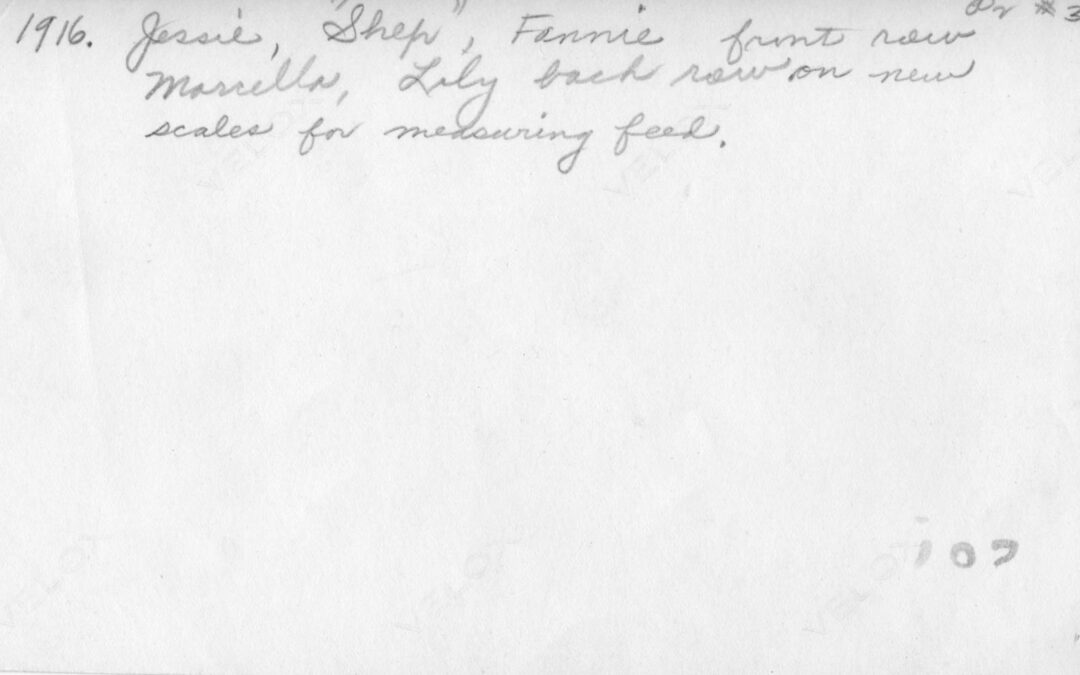 Pr #3
1916. Jessie, "Shep", Fannie front row
Marcella, Lily back row on new
scales for measuring feed.
VELOX